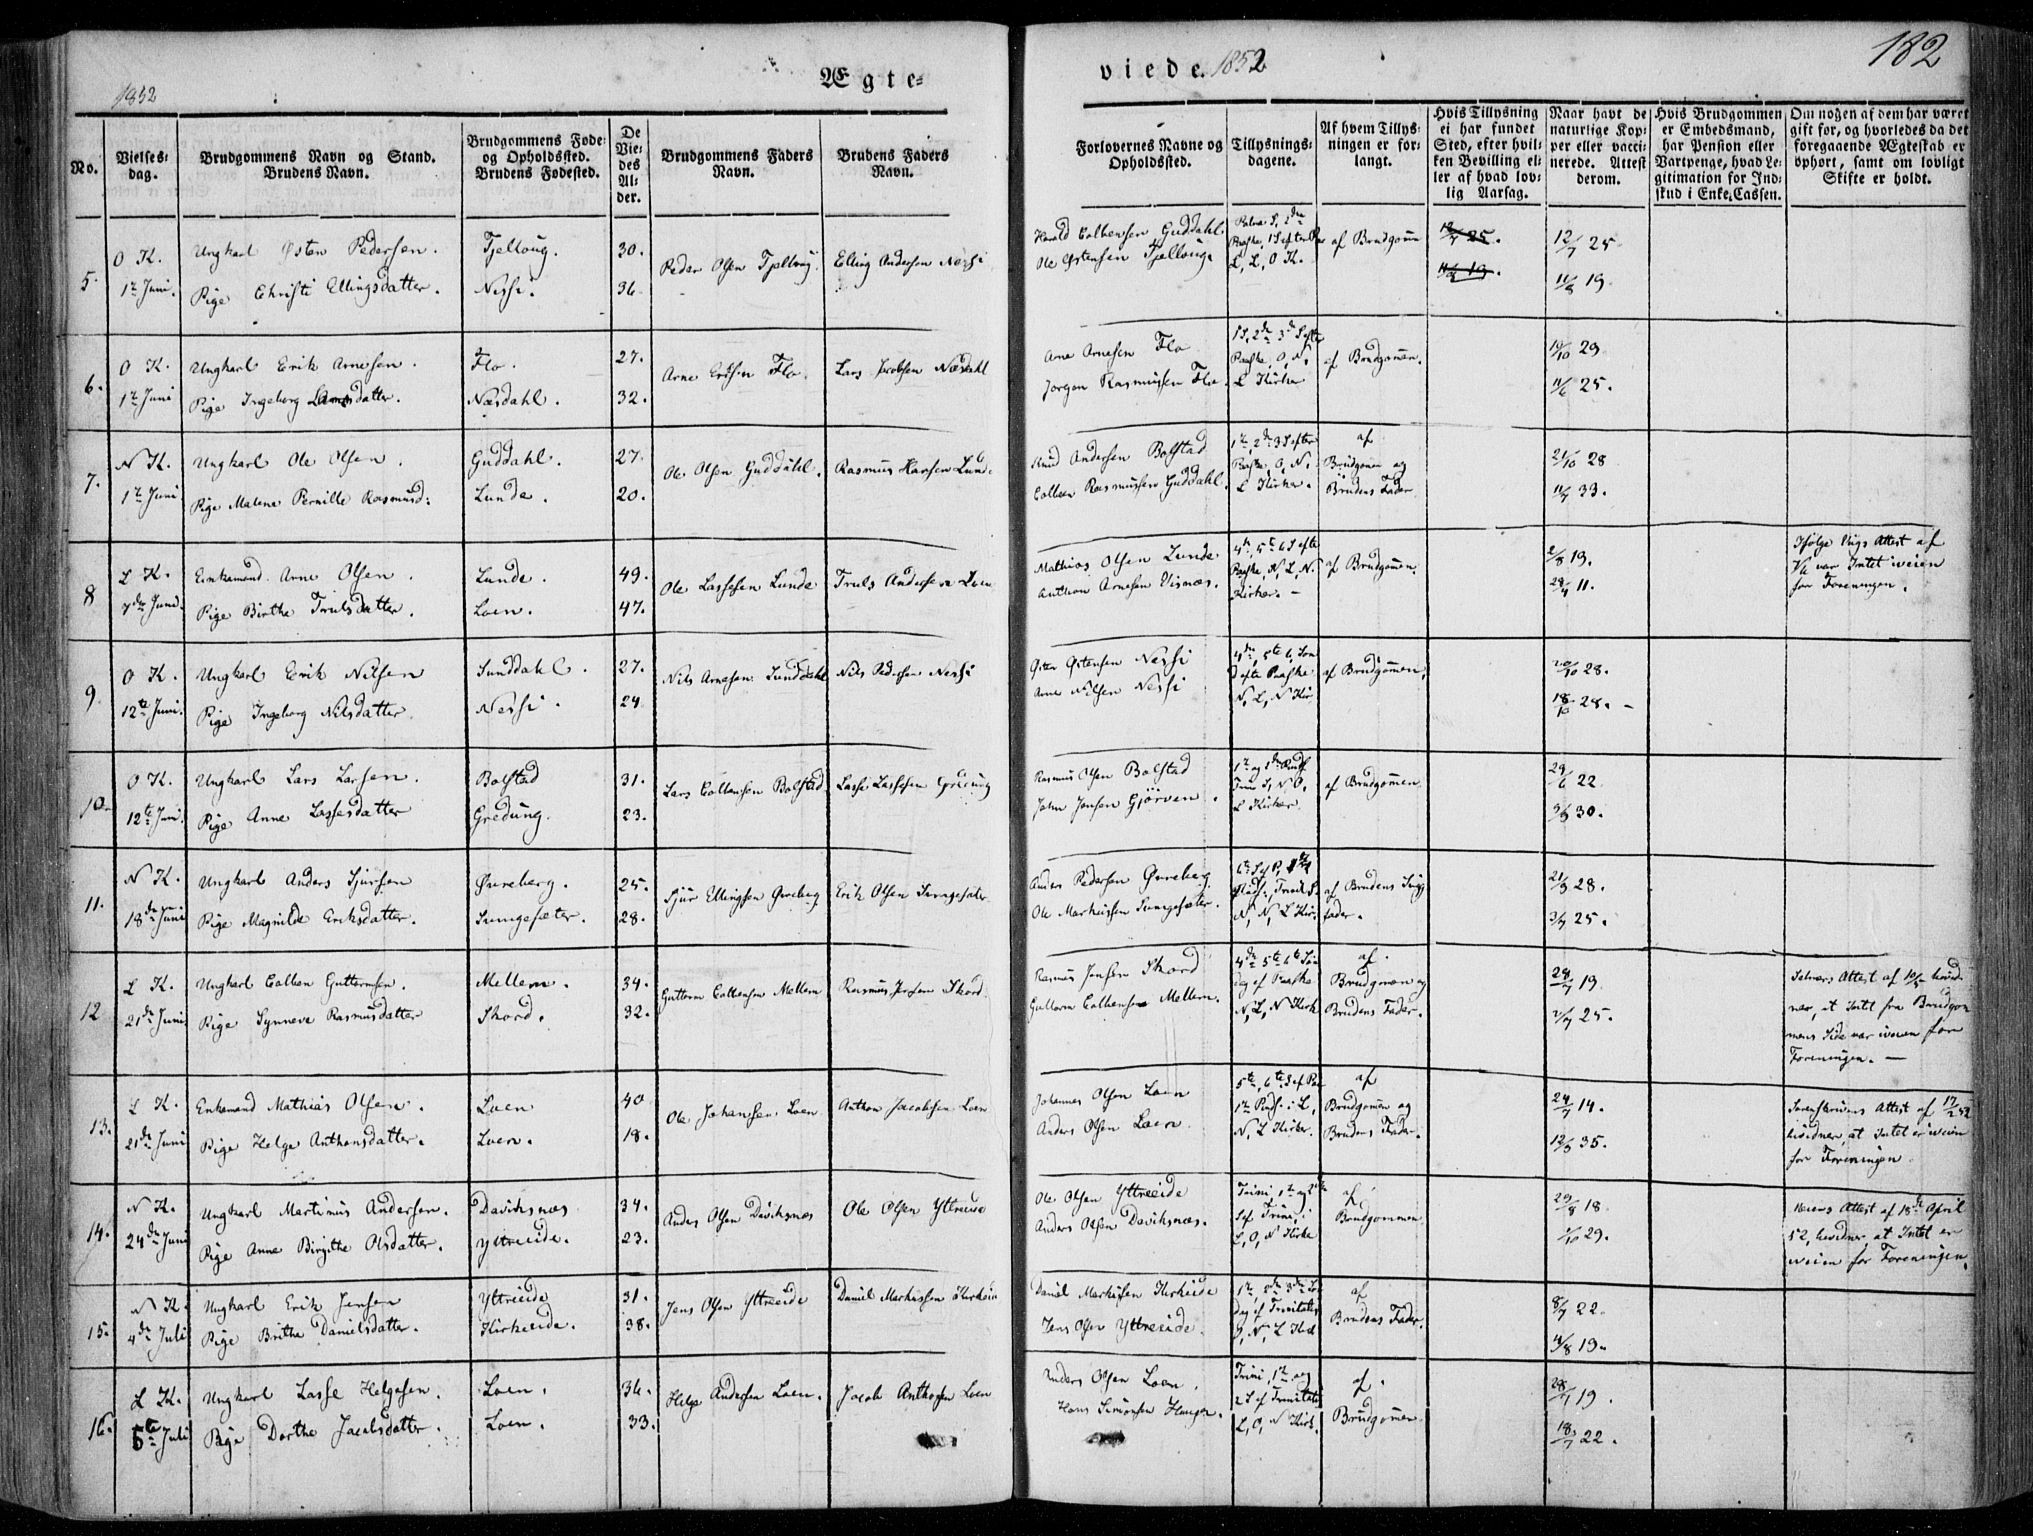 182
1852
Ægte-
viede. 1852
No.
Vielses-
dag.
Brudgommens Navn og Stand.
Brudens Navn.
Brudgommens Føde-
og Opholdssted.
Brudens Fødested.
De
Vie-
des
Al-
der.
Brudgommens Faders
Navn.
Brudens Faders
Navn.
Forlovernes Navne og
Opholdssted.
Tillysnings-
dagene.
Af hvem Tillys-
ningen er for-
langt.
Hvis Tillysning
ei har fundet
Sted, efter hvil-
ken Bevilling el-
ler af hvad lov-
lig Aarsag.
Naar havt de
naturlige Kop-
per eller vacci-
nerede. Attest
derom.
Hvis Brudgommen
er Embedsmand,
har Pension eller
Vartpenge, hvad Le-
gitimation for Ind-
skud i Enke-Cassen.
Om nogen af dem har været
gift før, og hvorledes da det
foregaaende Ægteskab er
ophørt, samt om lovligt
Skifte er holdt.
5.
O K.
1te Juni.
Ungkarl Østen Pedersen.
Pige Christi Ellingsdatter.
Tjelloug.
Nessi.
30.
36.
Peder Olsen Tjelloug.
Elling Andersen Nessi
Harald Colbensen Guddahl.
Ole Østensen Tjelloug.
L, L, O K.
af Brudgommen
12/7 25.
11/8 19.
12/7 25
11/8 19.
6.
O K.
1te Juni
Ungkarl Erik Arnesen.
Pige Ingeborg Larsdatter.
Flo.
Næsdahl.
27.
32.
Arne Erichsen Flo.
Lars Jacobsen Næsdahl
Arne Arnesen Flo
Jørgen Rasmussen Flo.
1S, 2de 3de S efter
Paaske, O, N,
L Kirker
af Brudgommen.
19/10 29
11/6 25.
7.
N K.
1te Juni
Ungkarl Ole Olsen.
Pige Malene Pernille Rasmusd:
Guddahl.
Lunde.
27.
20.
Ole Olsen Guddahl.
Rasmus Hansen Lunde
Knud Andersen Bolstad
Colben Rasmussen Guddahl.
1te, 2de 3 S efter
Paaske, O, N,
L Kirker.
af
Brudgommen og
Brudens Fader
21/10 28
11/7 33.
8
L K.
7de Juni.
Enkemand Arne Olsen.
Pige Birthe Trulsdatter.
Lunde.
Loen.
49.
47.
Ole Lassesen Lunde
Truls Andersen Loen
Mathias Olsen Lunde
Anthon Arnesen Visnæs.
4de, 5te 6 S efter
Paaske, N, L, N.
Kirker. —
af Brudgommen.
2/8 19.
29/9 11.
Ifølge Vugs Attest af
var Intet iveien
for Foreningen.
9.
O K.
12te Juni.
Ungkarl Erik Nilsen
Pige Ingeborg Nilsdatter.
Sunddahl.
Nessi.
27.
24
Nils Arnesen Sunddahl
Nils Pedersen Nessi
Østen Østensen Nessi
Arne Nilsen Nessi
4de, 5te 6, Søn
d efter Paaske
N, L, N Kir
af Brudgommen,
20/10 28.
18/10 28. -
10.
O K.
12te Juni.
Ungkarl Lars Larsen.
Pige Anne Lassesdatter
Bolstad
Gredung.
31.
23.
Lars Colbensen Bolstad
Lasse Lassesen Gredung
Rasmus Olsen Bolstad
John Jensen Gjørven.
1te og 2de Pinds
Trin S, N, O,
L Kirker.
af Brudgommen
29/6 22
3/9 30.
11.
N K.
18de Juni
Ungkarl Anders Sjursen
Pige Magnilde Eriksdatter.
Øvreberg.
Sumgesæter.
25.
28.
Sjur Ellingsen Øvreberg
Erik Olsen Sumgesæter
Anders Pedersen Øvreberg.
Ole Markussen Sumgesæter.
N, N, L Kir.
af Brudens Svig
fader.
21/9 28.
3/7 25.
12
L K.
21de Juni
Ungkarl Colben Guttormsen.
Pige Synneve Rasmusdatter
Mellem.
Skord.
34.
32.
Guttorm Colbensen Mellem
Rasmus Jensen Skord.
Rasmus Jensen Skord
Guttorm Colbensen Mellem.
4de 5te 6te Søn
dag ef Paaske
N, L, N Kirk
af.
Brudgommen og
Brudens Fader.
28/7 19.
2/7 25.
Selvers Attest af 10/5 bevid-
ner, at Intet fra Brudgom
mens Side var iveien for
Foreningen. —
13.
L K.
21de Juni
Enkemand Mathias Olsen.
Pige Helge Anthonsdatter.
Loen
Loen.
40
18.
Ole Johansen Loen
Anthon Jacobsen Loen
Johannes Olsen Loen
Anders Olsen Loen.
5te, 6te S ef Paa
1te Pinds i L,
N, L Kirker.
af
Brudgommen og
Brudens Fader.
24/7 14.
12/9 35.
Sorenskrivens Attest af 17/2 52
bevidner, at Intet er iveien
for Foreningen.
14.
N K.
24de Juni
Ungkarl Martinus Andersen.
Pige Anne Birgithe Olsdatter.
Daviksnæs
Yttreeide.
34.
23.
Anders Olsen Daviksnæs
Ole Olsen Yttreeide
Ole Olsen Yttreeide
Anders Olsen Daviksnæs.
Trini, 1te og 2de
S ef Trini, i
L, O, N Kirke
af
Brudgommen.
29/8 18.
1/10 29.
Attest af 18de April
52, bevidner, at Intet er
iveien for Foreningen.
15.
N K.
4de Juli
Ungkarl Erik Jensen
Pige Brithe Danielsdatter.
Yttreeide
Kirkeeide.
31.
38.
Jens Olsen Yttreeide
Daniel Markussen Kirkeeide
Daniel Markussen Kirkeeide
Jens Olsen Yttreeide.
1te, 2de 3de Søn
dag ef Trinitatis
O, N, L Kirk
af
Brudens Fader.
8/7 22.
4/8 19.
16.
L K.
5te Juli
Ungkarl Lasse Helgesen.
Pige Dorthe Jacobsdatter.
Loen.
Loen.
36.
33.
Helge Andersen Loen.
Jacob Anthonsen Loen
Anders Olsen Loen.
Hans Simonsen Haugen.
Trini, 1te og
2 S ef Trinitatis
L, O, N Kirk.
af.
Brudgommen.
28/7 19.
18/7 22.